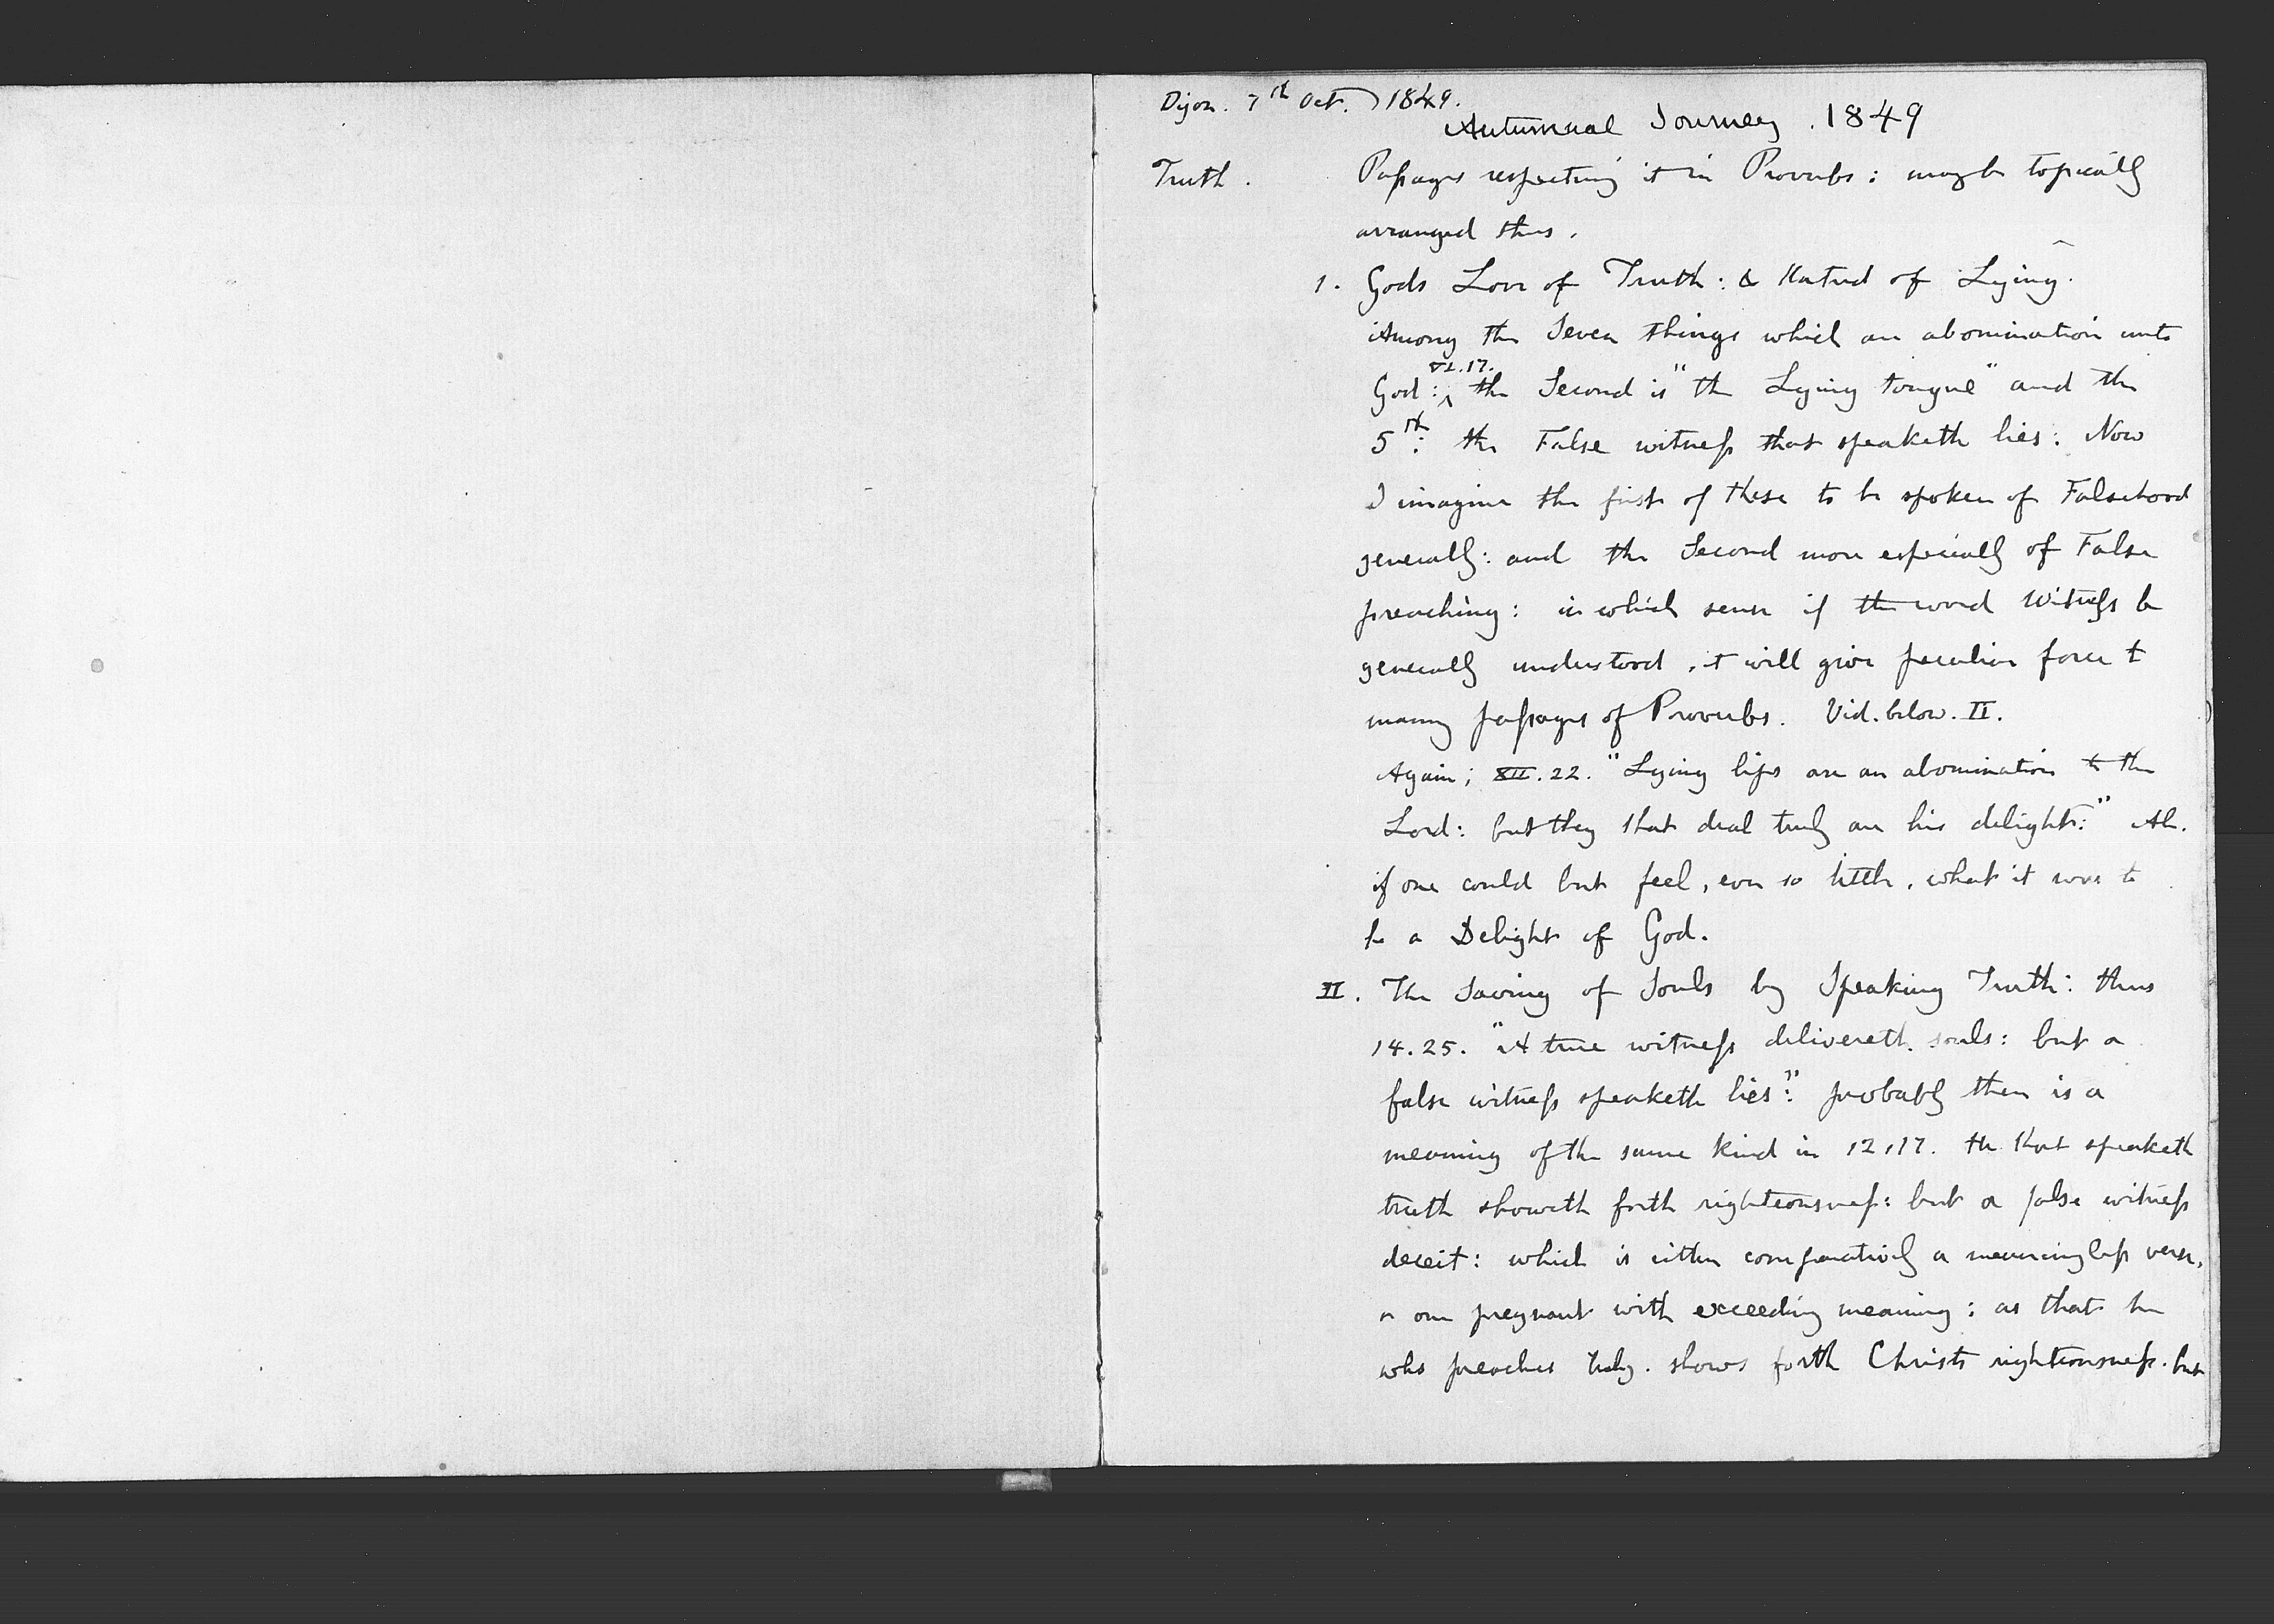 Dijon. 7th Oct. 1849.
Autumnal Journey. 1849
Truth. Passages respecting it in Proverbs: may be topically
arranged thus.
1. Gods Love of Truth: & Hatred of Lying.
Among the Seven things which are abomination unto
God: VI.17. the Second is "the Lying tongue" and the
5th: the False witness that speaketh lies: Now
I imagine the first of these to be spoken of Falsehood
generally: and the Second more especially of False
preaching: in which sense if the word Witness be
generally understood, it will give peculiar force to
many passages of Proverbs. Vid. below. II.
Again; XII.22. "Lying lips are an abomination to the
Lord: but they that deal truly are his delight:" Ah.
if one could but feel, ever so little, what it was to
be a Delight of God.
II. The Saving of Souls by Speaking Truth: thus
14.25. "A true witness delivereth souls: but a
false witness speaketh lies": probably there is a
meaning of the same kind in 12,17. He that speaketh
truth showeth forth righteousness: but a false witness
deceit: which is either comparatively a meaningless verse,
or one pregnant with exceeding meaning: as that he
who preaches truly. shows forth Christs righteousness. but